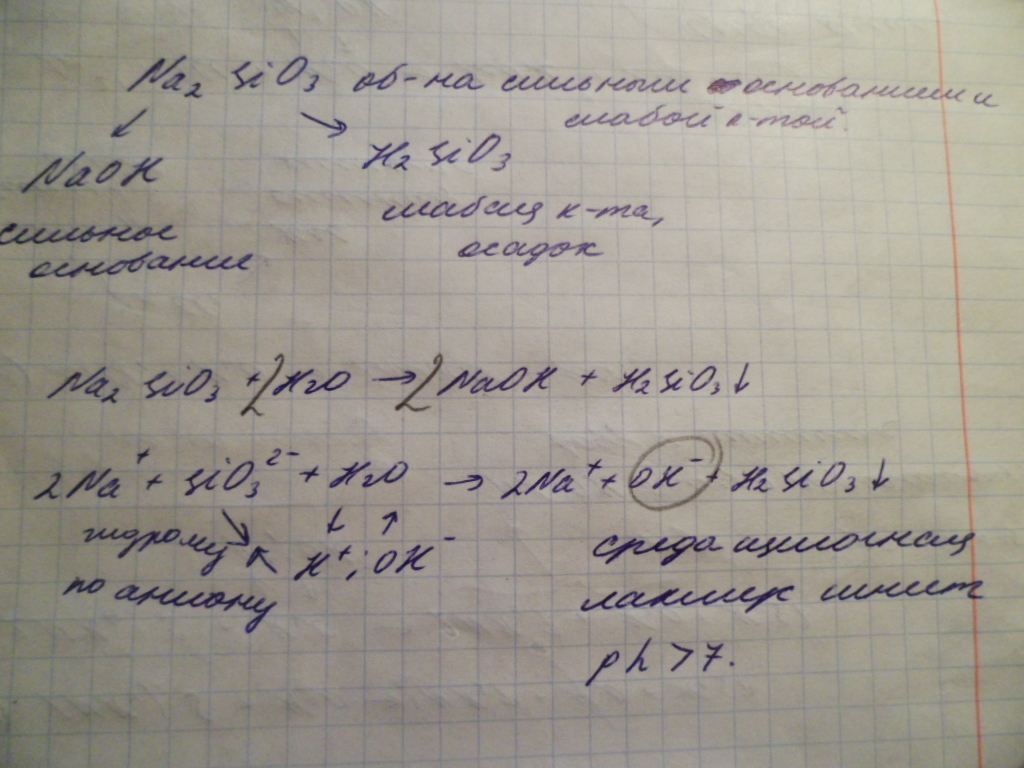 Na₂SiO₃ об-на сильным основанием и
слабой к-той.
↙ ↘
NaOH H₂SiO₃
сильное основание
слабая к-та, осадок
Na₂SiO₃ + 2H₂O → 2NaOH + H₂SiO₃↓
2Na⁺ + SiO₃²⁻ + H₂O → 2Na⁺ + OH⁻ + H₂SiO₃↓
H⁺; OH⁻
гидролиз
по аниону
среда щелочная
лакмус синий
ph > 7.